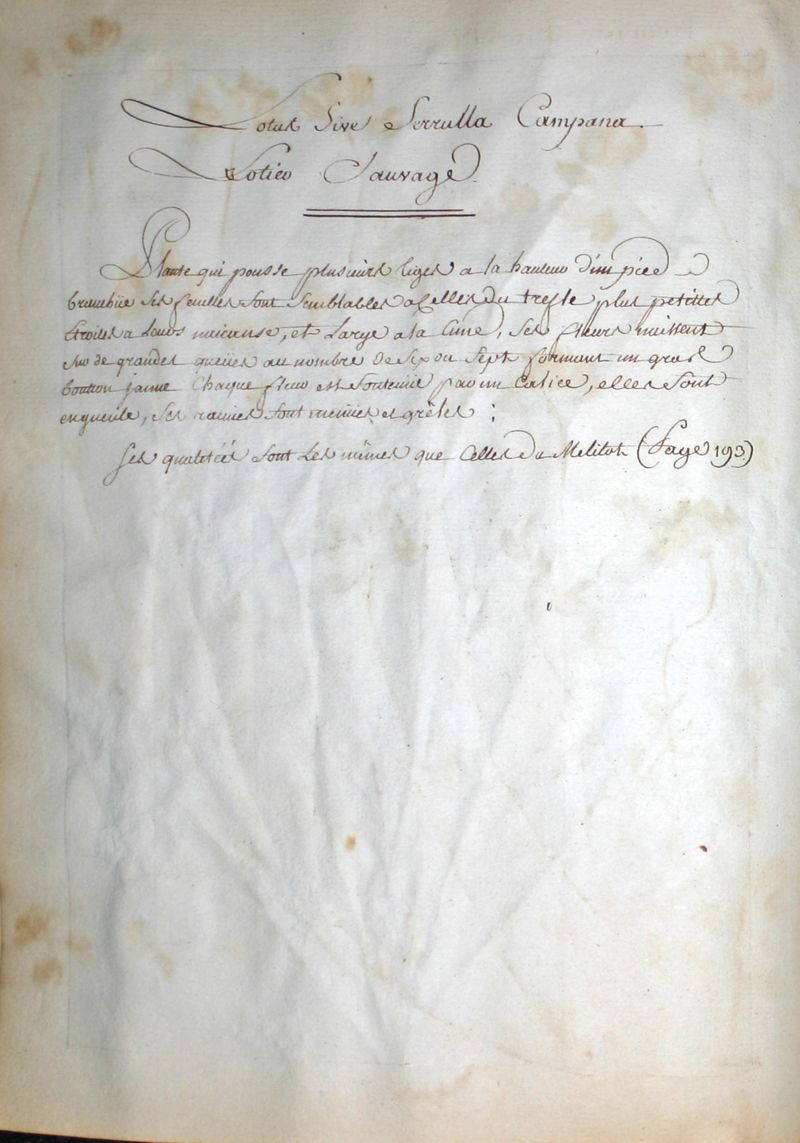 Lotus Sive Serrulla Campana
Lotieo Sauvage
Plante qui pousse plusieurs tiges a la hauteur d'un pied
branchüe ses feuilles sont semblables a Celles du trefle plus petittes
étroites a leurs naicense, et Large a la Cime, ses fleurs naissent
sur de grandes queües au nombre de Six ou Sept formant un gros
boutton jaune Chaque fleur est soutenüe par un Calice, elles sont
en gueule, ses racines sont menües et grêles ;
ses qualitées sont les mêmes que Celles du Melilot (Page 193)